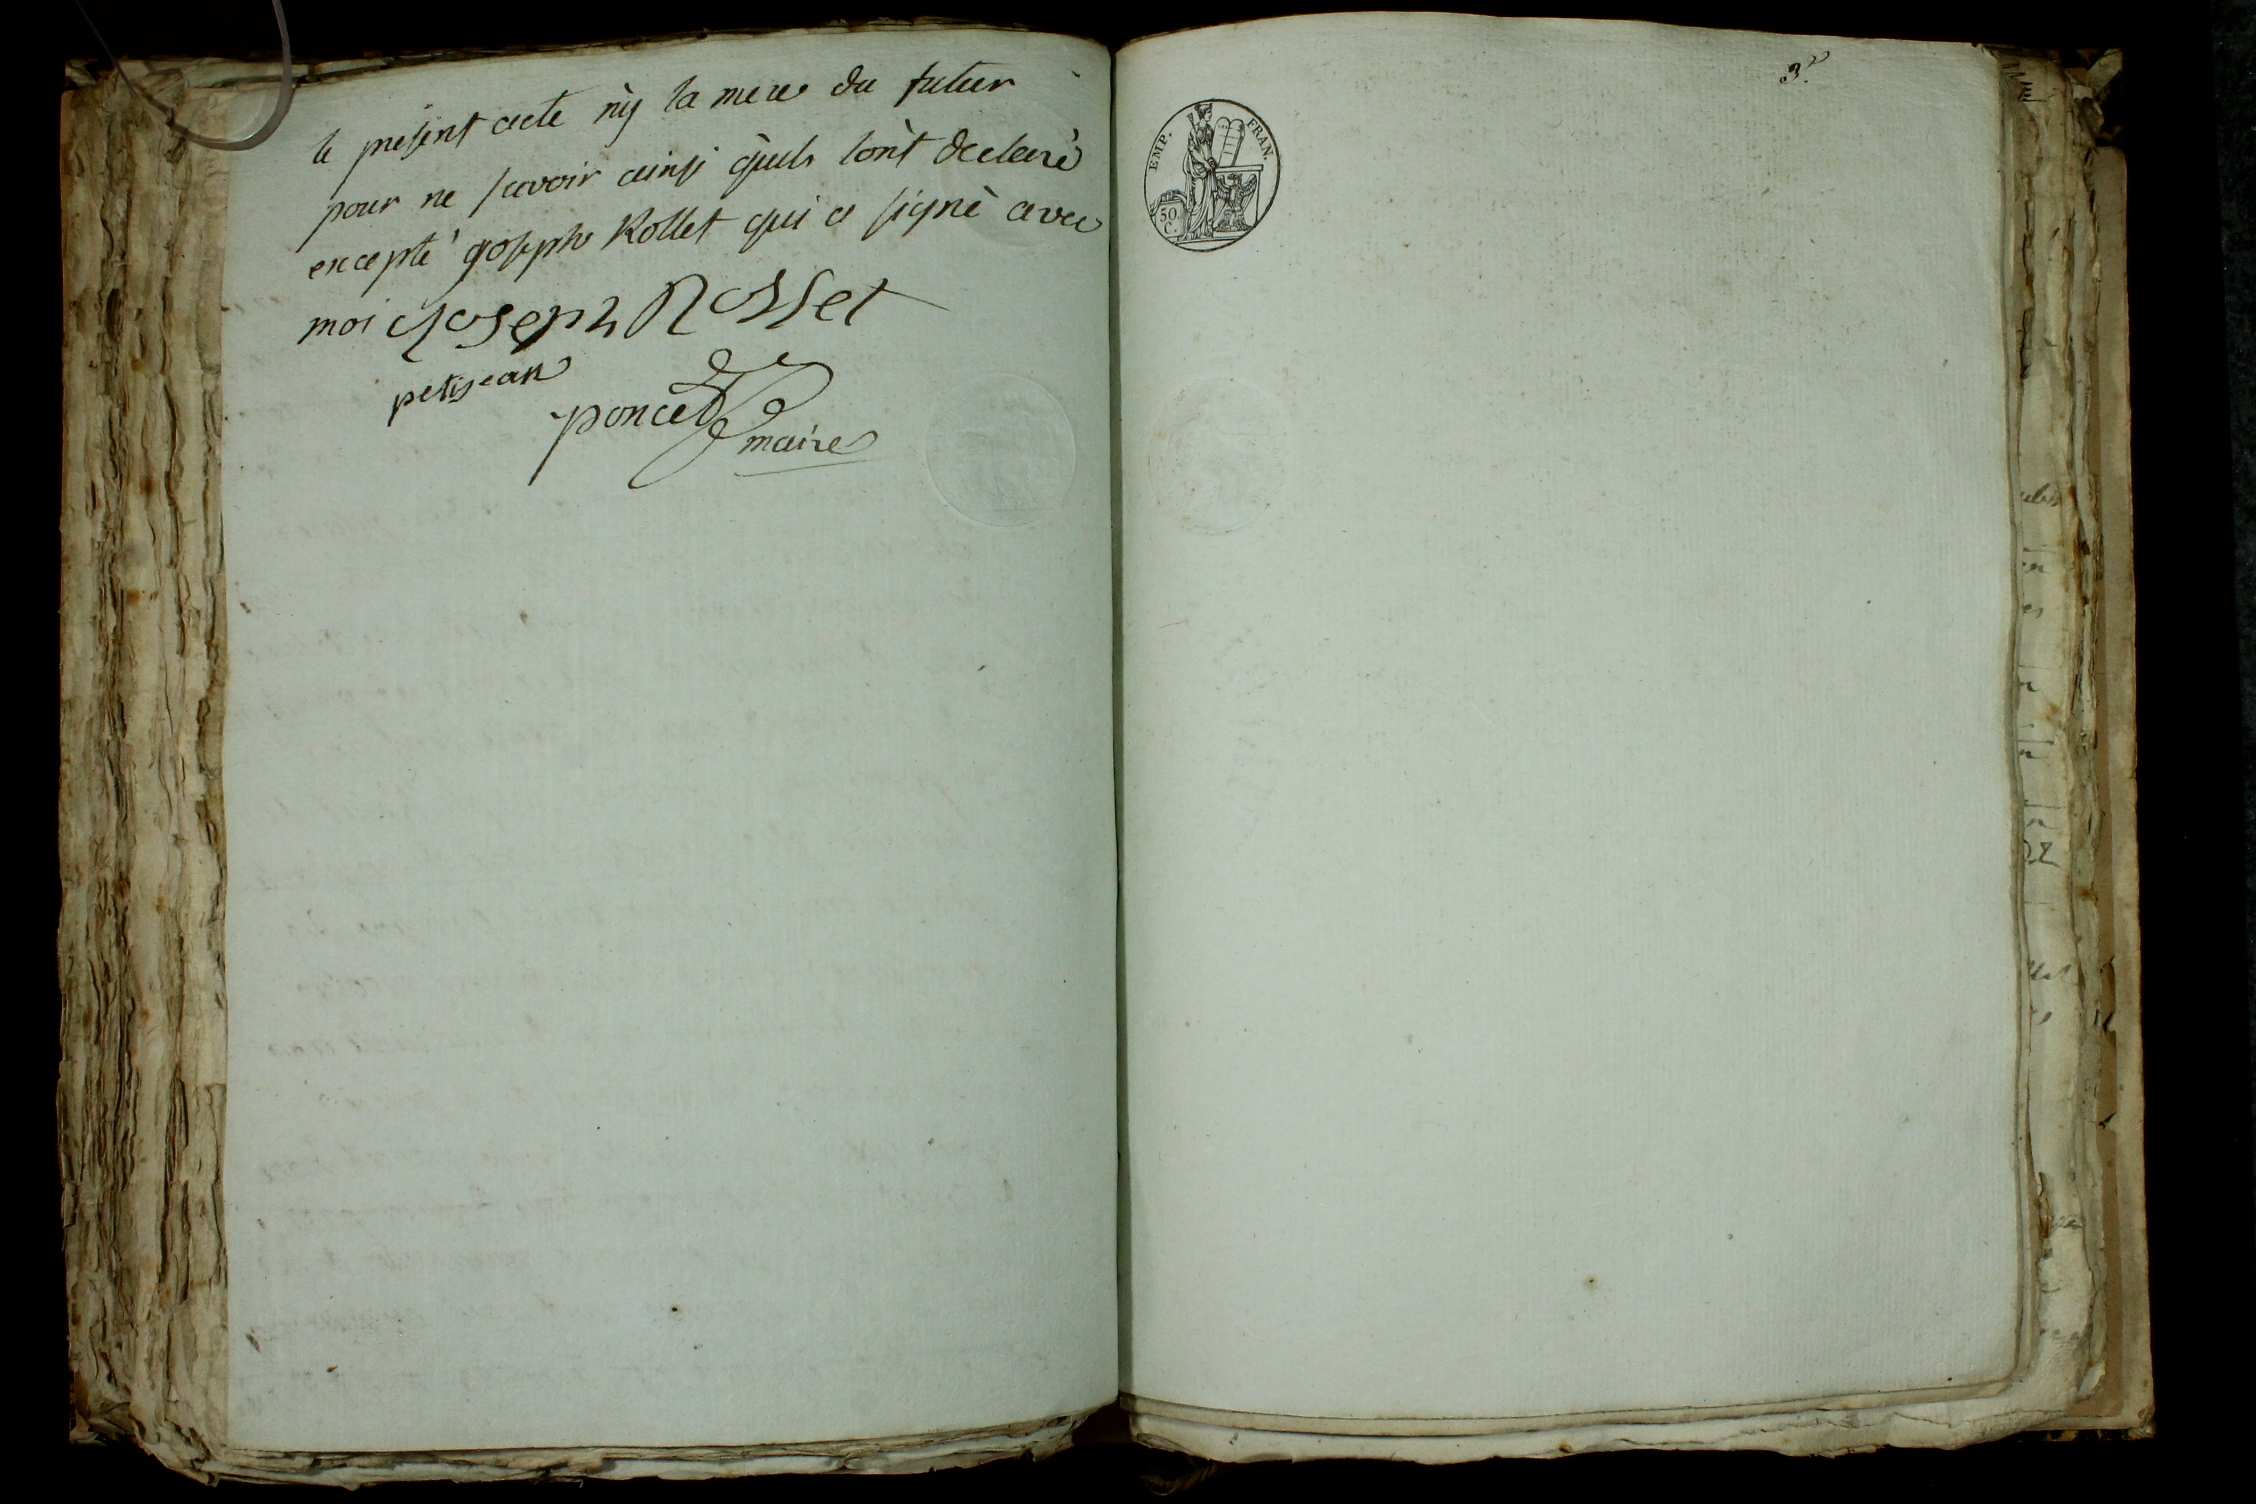 le present acte nÿ la mere du futur
pour ne scavoir ainsi quils lont declaré
excepté joseph Rollet qui a signé avec
moi Joseph Rollet
petijean
poncet
maire
3e
EMP. FRAN.
50
C.